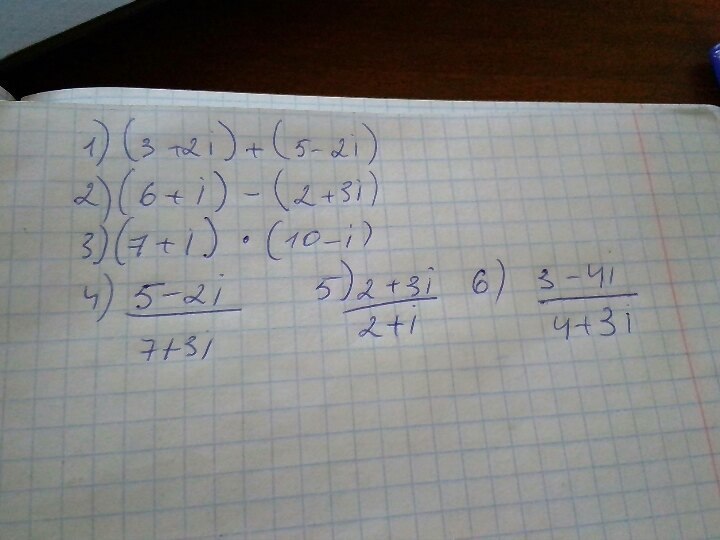 1) (3+2i)+(5-2i)
2) (6+i)-(2+3i)
3) (7+i)•(10-i)
4) 5-2i / 7+3i 5) 2+3i / 2+i 6) 3-4i / 4+3i